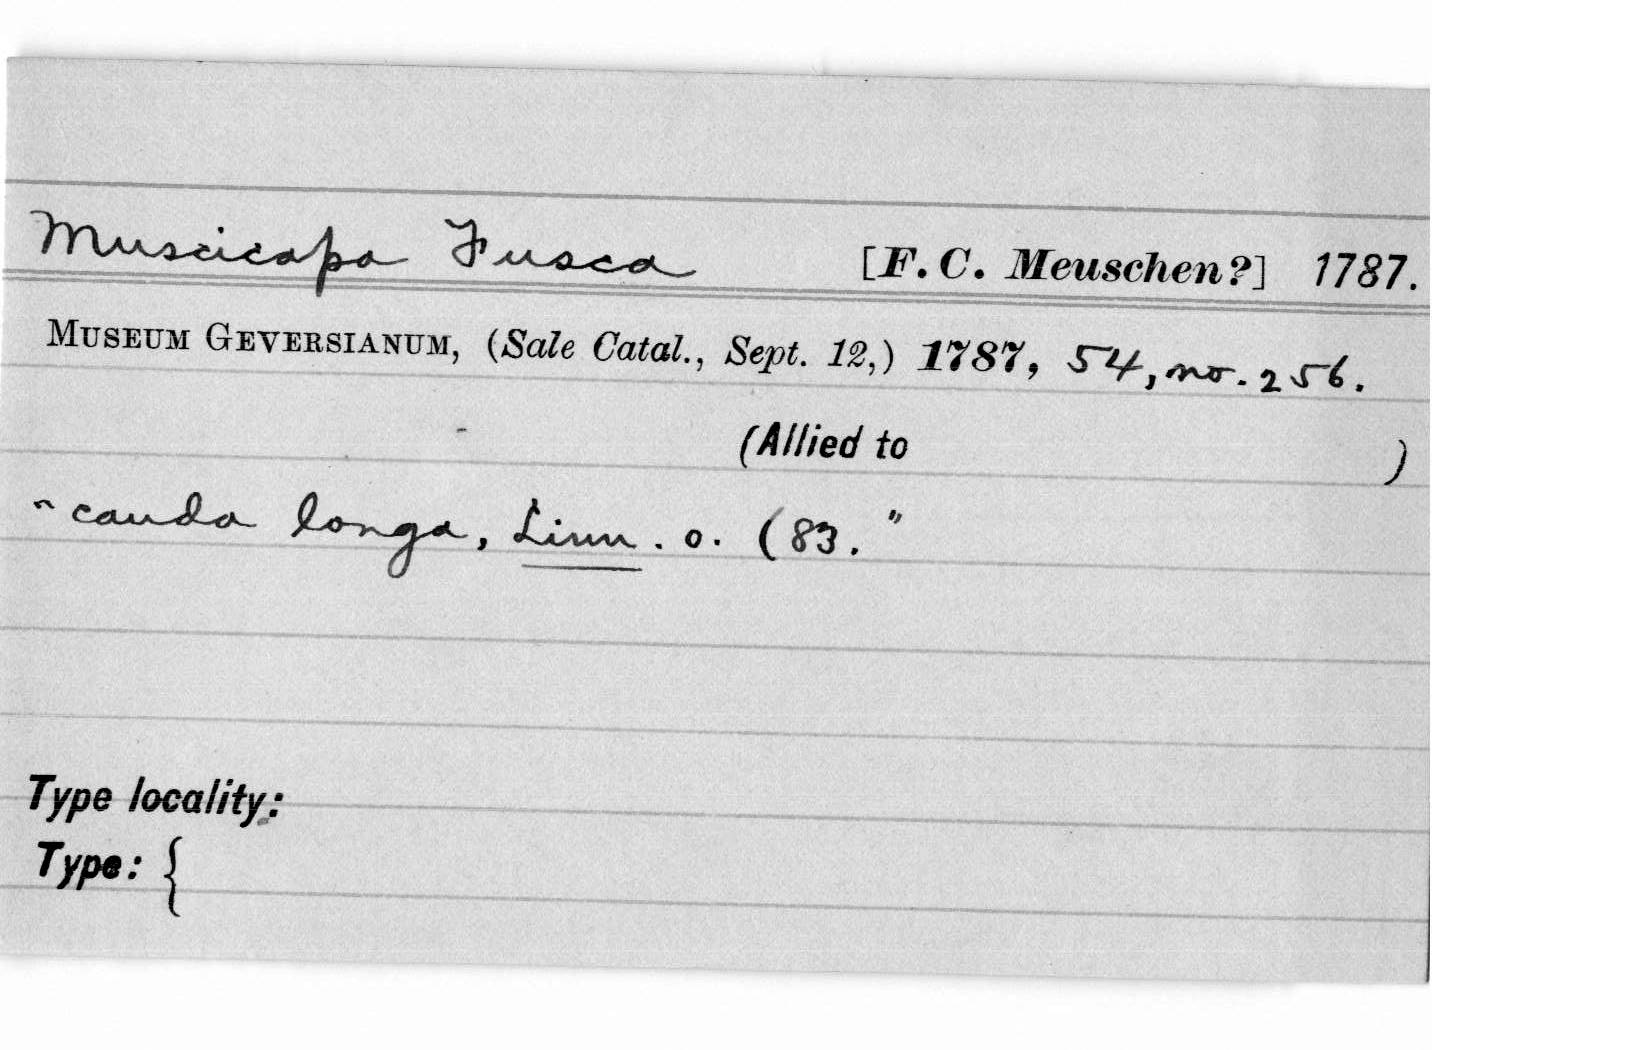 Muscicapa Fusca [F. C. Meuschen?] 1787.
MUSEUM GEVERSIANUM, (Sale Catal., Sept. 12,) 1787, 54, no. 256.
(Allied to )
"cauda longa, Linn. o. (83."
Type locality:
Type: {